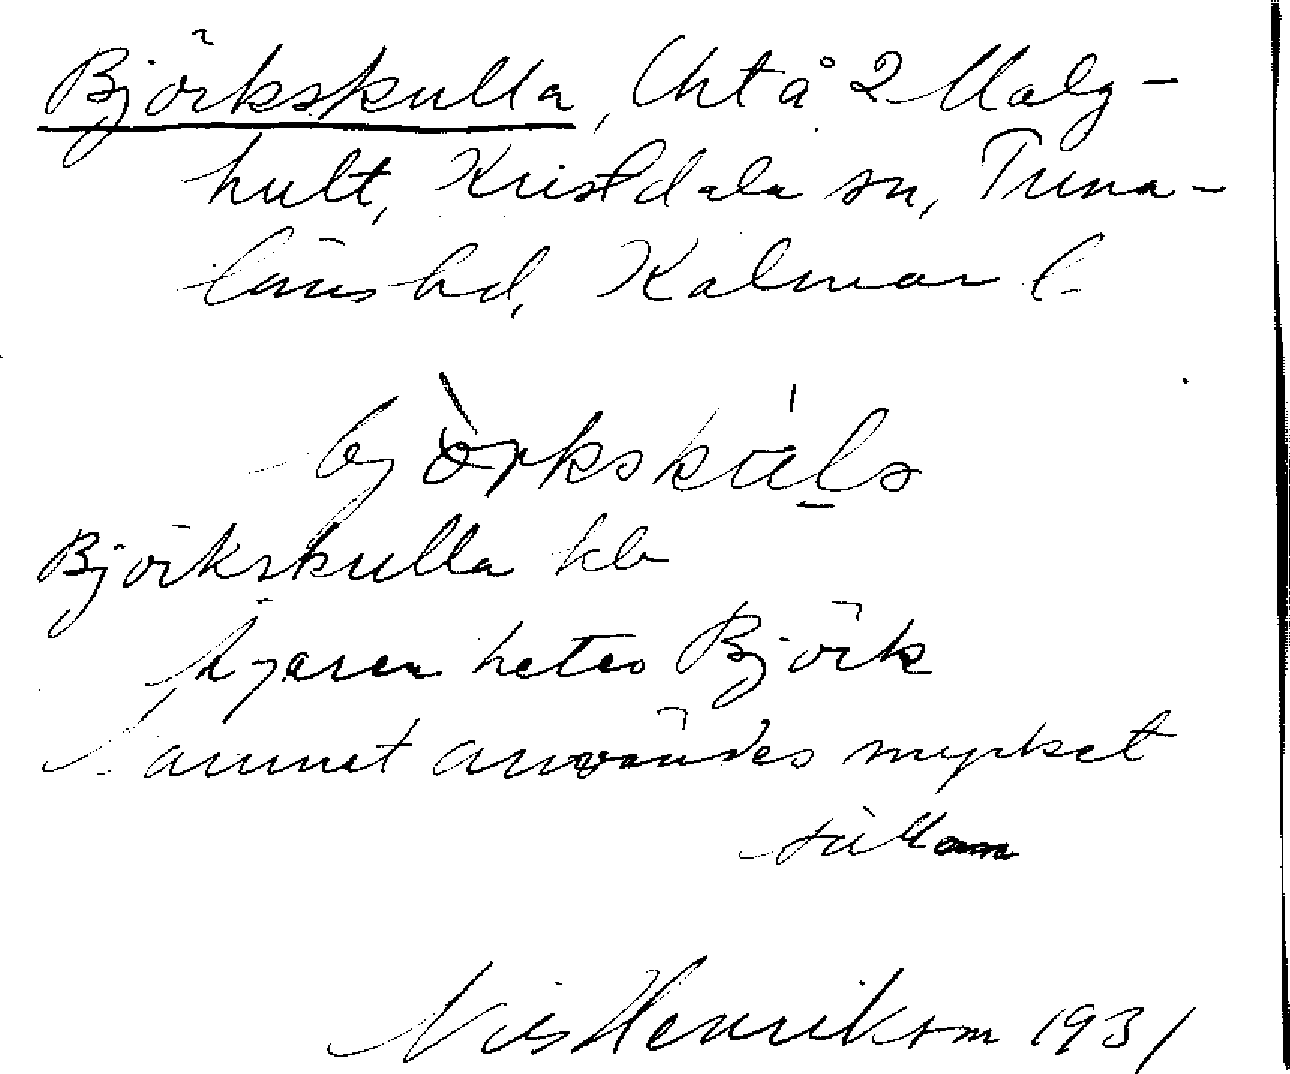 Björkskulla, Lht å 2 Malg-
hult, Kristdala sn, Tuna-
läns hd, Kalmar l.
björkskuls
Björkskulla kb
Ägaren hetes Björk
Namnet användes mycket
sällan
Nils Henrikson 1931